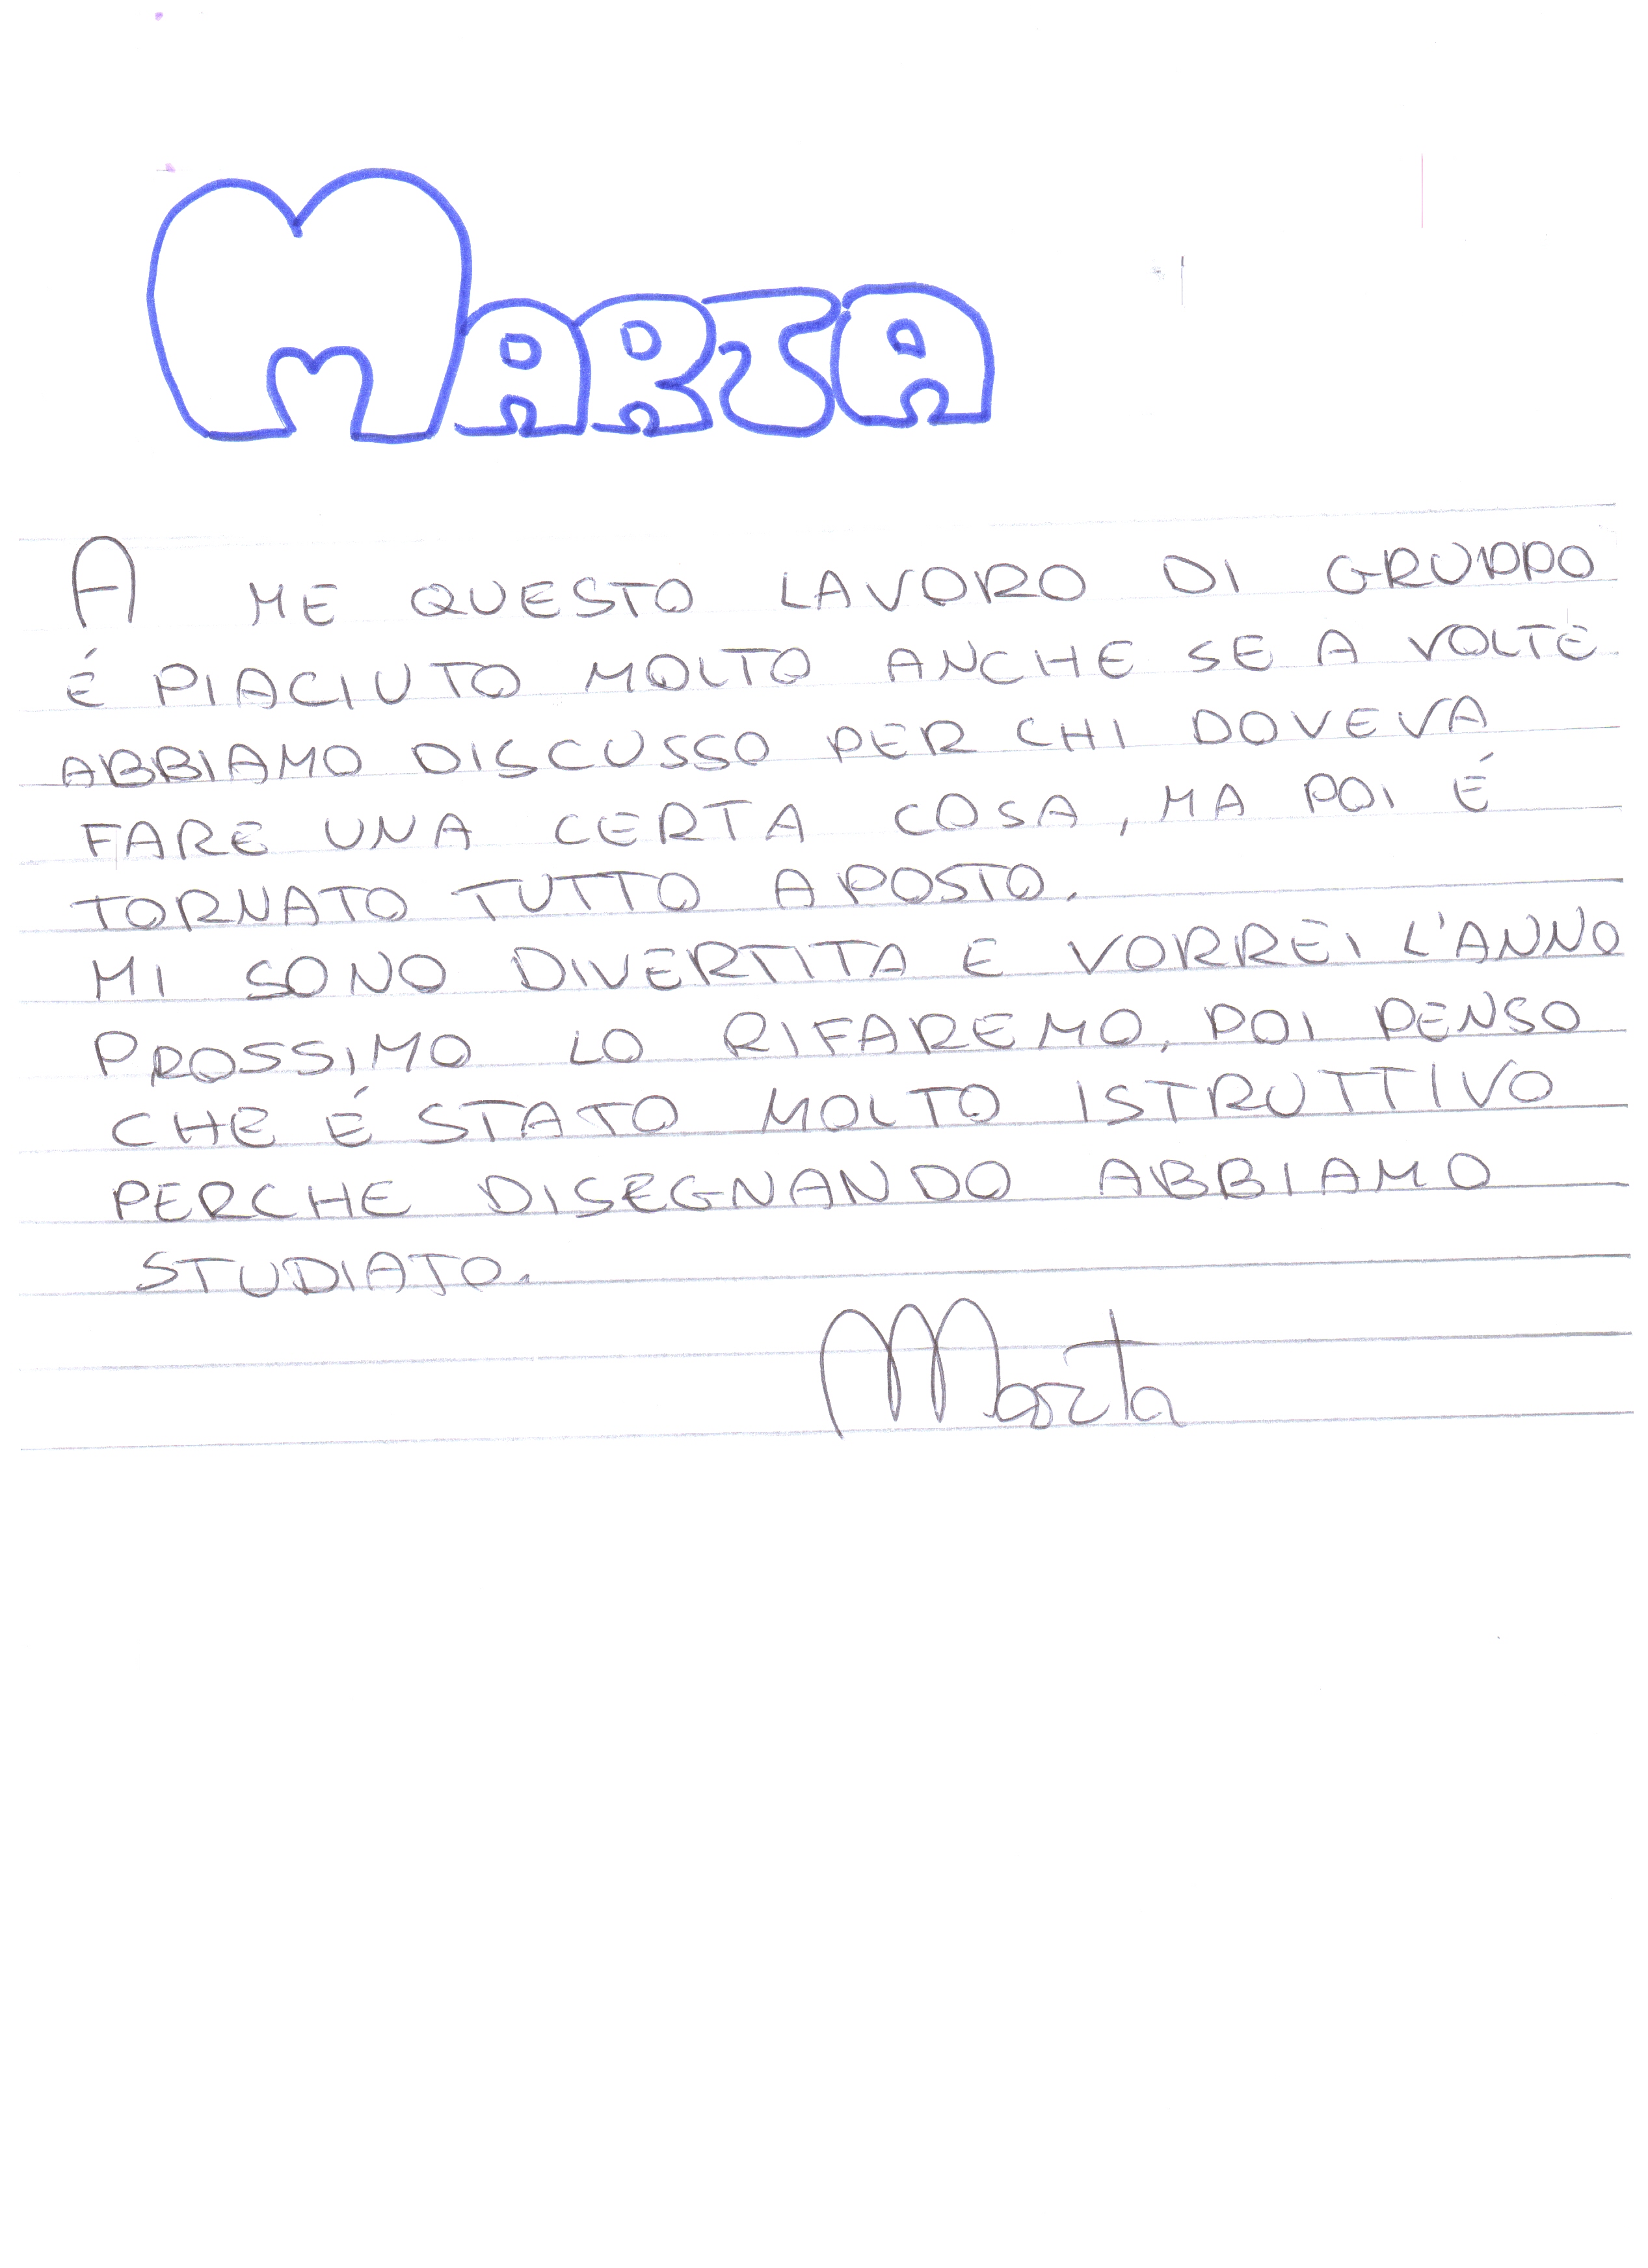 MARTA
A ME QUESTO LAVORO DI GRUPPO
É PIACIUTO MOLTO ANCHE SE A VOLTE
ABBIAMO DISCUSSO PER CHI DOVEVA
FARE UNA CERTA COSA, MA POI É
TORNATO TUTTO APOSTO.
MI SONO DIVERTITA E VORREI L'ANNO
PROSSIMO LO RIFAREMO, POI PENSO
CHE É STATO MOLTO ISTRUTTIVO
PERCHE DISEGNANDO ABBIAMO
STUDIATO.
Marta